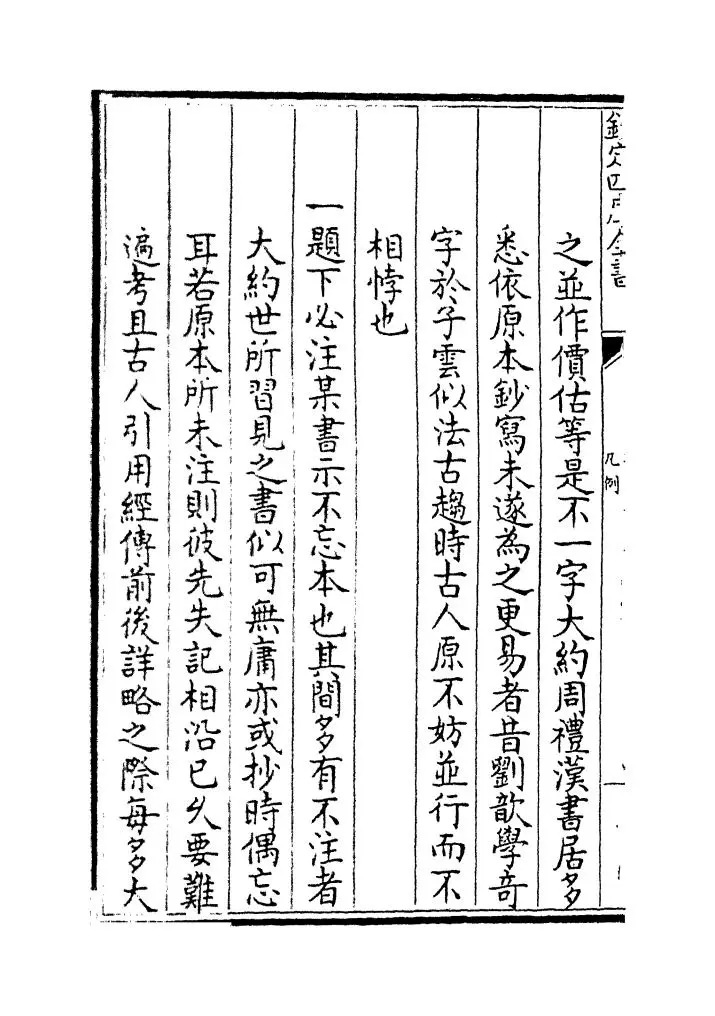 欽定四庫全書
凡例
之並作價估等是不一字大約周禮漢書居多
悉依原本鈔寫未遂為之更易者昔劉歆學奇
字於子雲似法古趨時古人原不妨並行而不
相悖也
一題下必注某書示不忘本也其間多有不注者
大約世所習見之書似可無庸亦或抄時偶忘
耳若原本所未注則彼先失記相沿已久要難
遍考且古人引用經傳前後詳略之際每多大